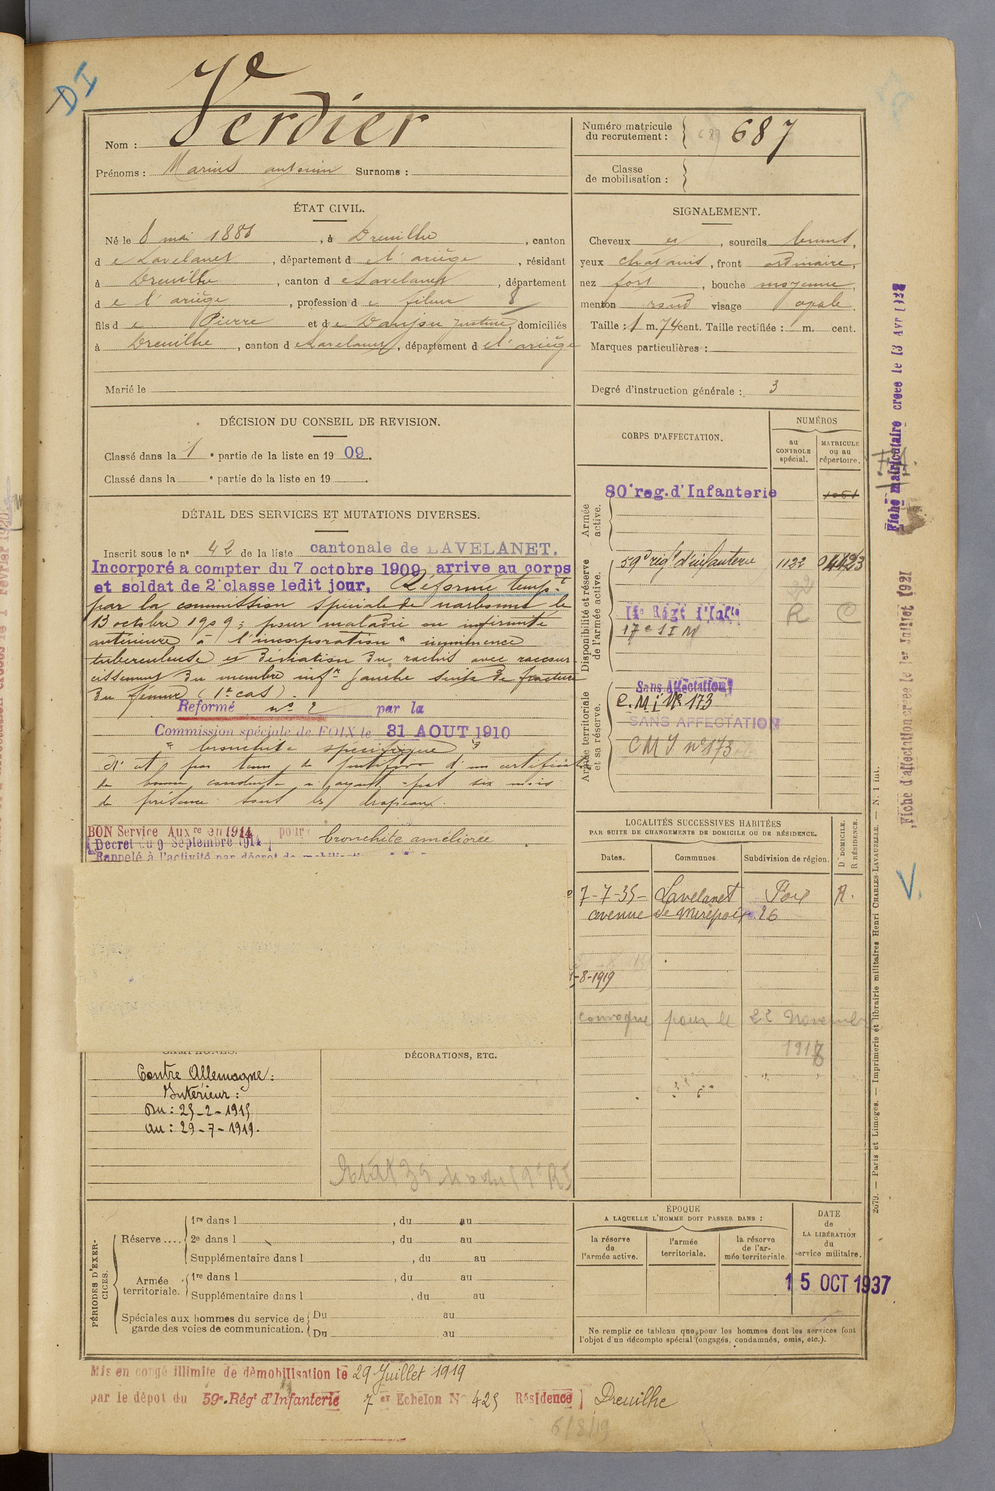 DI
Nom : Verdier
Prénoms : Marius antonin Surnoms :
Numéro matricule du recrutement : 687
Classe de mobilisation :
ÉTAT CIVIL.
Né le 8 mai 188 , à Dreuilhe , canton
d e Lavelanet , département d e l'ariège , résidant
à Dreuilhe , canton d e Lavelanet , département
d e l'ariège , profession d e fileur 8
fils d e Pierre et d e Justine , domiciliés
à Dreuilhe , canton d e Lavelanet , département d e l'ariège
Marié le
SIGNALEMENT.
Cheveux et , sourcils bruns,
yeux chatains , front ordinaire,
nez fort , bouche moyenne,
menton rond visage ovale
Taille : 1 m. 74 cent. Taille rectifiée : m. cent.
Marques particulières :
Degré d'instruction générale : 3
DÉCISION DU CONSEIL DE REVISION.
Classé dans la 1 e partie de la liste en 19 09.
Classé dans la e partie de la liste en 19
CORPS D'AFFECTATION.
NUMÉROS
au CONTROLE spécial.
MATRICULE ou au répertoire.
Armée active.
80e reg. d'Infanterie
Disponibilité et réserve de l'armée active.
59e régt d'infanterie 1122
R C
17e S I M
Armée territoriale et sa réserve.
Sans Affectation
C. M. i N° 173
SANS AFFECTATION
C M I n° 173
DÉTAIL DES SERVICES ET MUTATIONS DIVERSES.
Inscrit sous le n° 42 de la liste cantonale de LAVELANET.
Incorporé a compter du 7 octobre 1909, arrive au corps
et soldat de 2e classe ledit jour, Réformé tempt
par la commission spéciale de narbonne le
13 octobre 1909; pour maladie ou infirmité
antérieure à l'incorporation " imminence
tuberculeuse et déviation du rachis avec raccour
cissement du membre infr gauche suite de fracture
du fémur (1er cas).
Reformé n° 2 par la
Commission spéciale de FOIX le 31 AOUT 1910
" bronchite spécifique "
N'a pas tenu de justifier d'un certificat
de bonne conduite n'ayant pas six mois
de présence sous les drapeaux.
BON Service Auxre en 1914 pour bronchite améliorée
[Decret du 9 Septembre 1914]
Rappelé à l'activité par décret de
LOCALITÉS SUCCESSIVES HABITÉES
PAR SUITE DE CHANGEMENTS DE DOMICILE OU DE RÉSIDENCE.
Dates. Communes Subdivision de région. D. DOMICILE. R. RÉSIDENCE.
7-7-35 Lavelanet Foix R.
avenue de Mirepoix 26
-8-1919
convoqué pour le 22 Novembre
1918
CAMPAGNES.
Contre Allemagne :
Intérieur :
Du : 25-2-1915
au : 29-7-1919.
DÉCORATIONS, ETC.
PÉRIODES D'EXERCICES.
Réserve ....
1re dans l , du au
2e dans l , du au
Supplémentaire dans l , du au
Armée territoriale.
1re dans l , du au
Supplémentaire dans l , du au
Spéciales aux hommes du service de garde des voies de communication.
Du au
Du au
ÉPOQUE
A LAQUELLE L'HOMME DOIT PASSER DANS :
la réserve de l'armée active.
l'armée territoriale.
la réserve de l'armée territoriale.
DATE de LA LIBÉRATION du service militaire.
15 OCT 1937
Ne remplir ce tableau que pour les hommes dont les services font
l'objet d'un décompte spécial (engagés, condamnés, omis, etc.).
Mis en congé illimité de démobilisation le 29 Juillet 1919
par le dépot du 59e Régt d'Infanterie 7er Echelon N° 425 Résidence ] Dreuilhe
6/8/19
Fiche matriculaire créée le 13 Avr
Fiche d'affectation créée le 1er Juillet 1921
V.
2679. — Paris et Limoges. — Imprimerie et librairie militaires Henri CHARLES-LAVAUZELLE. — N. 1 int.